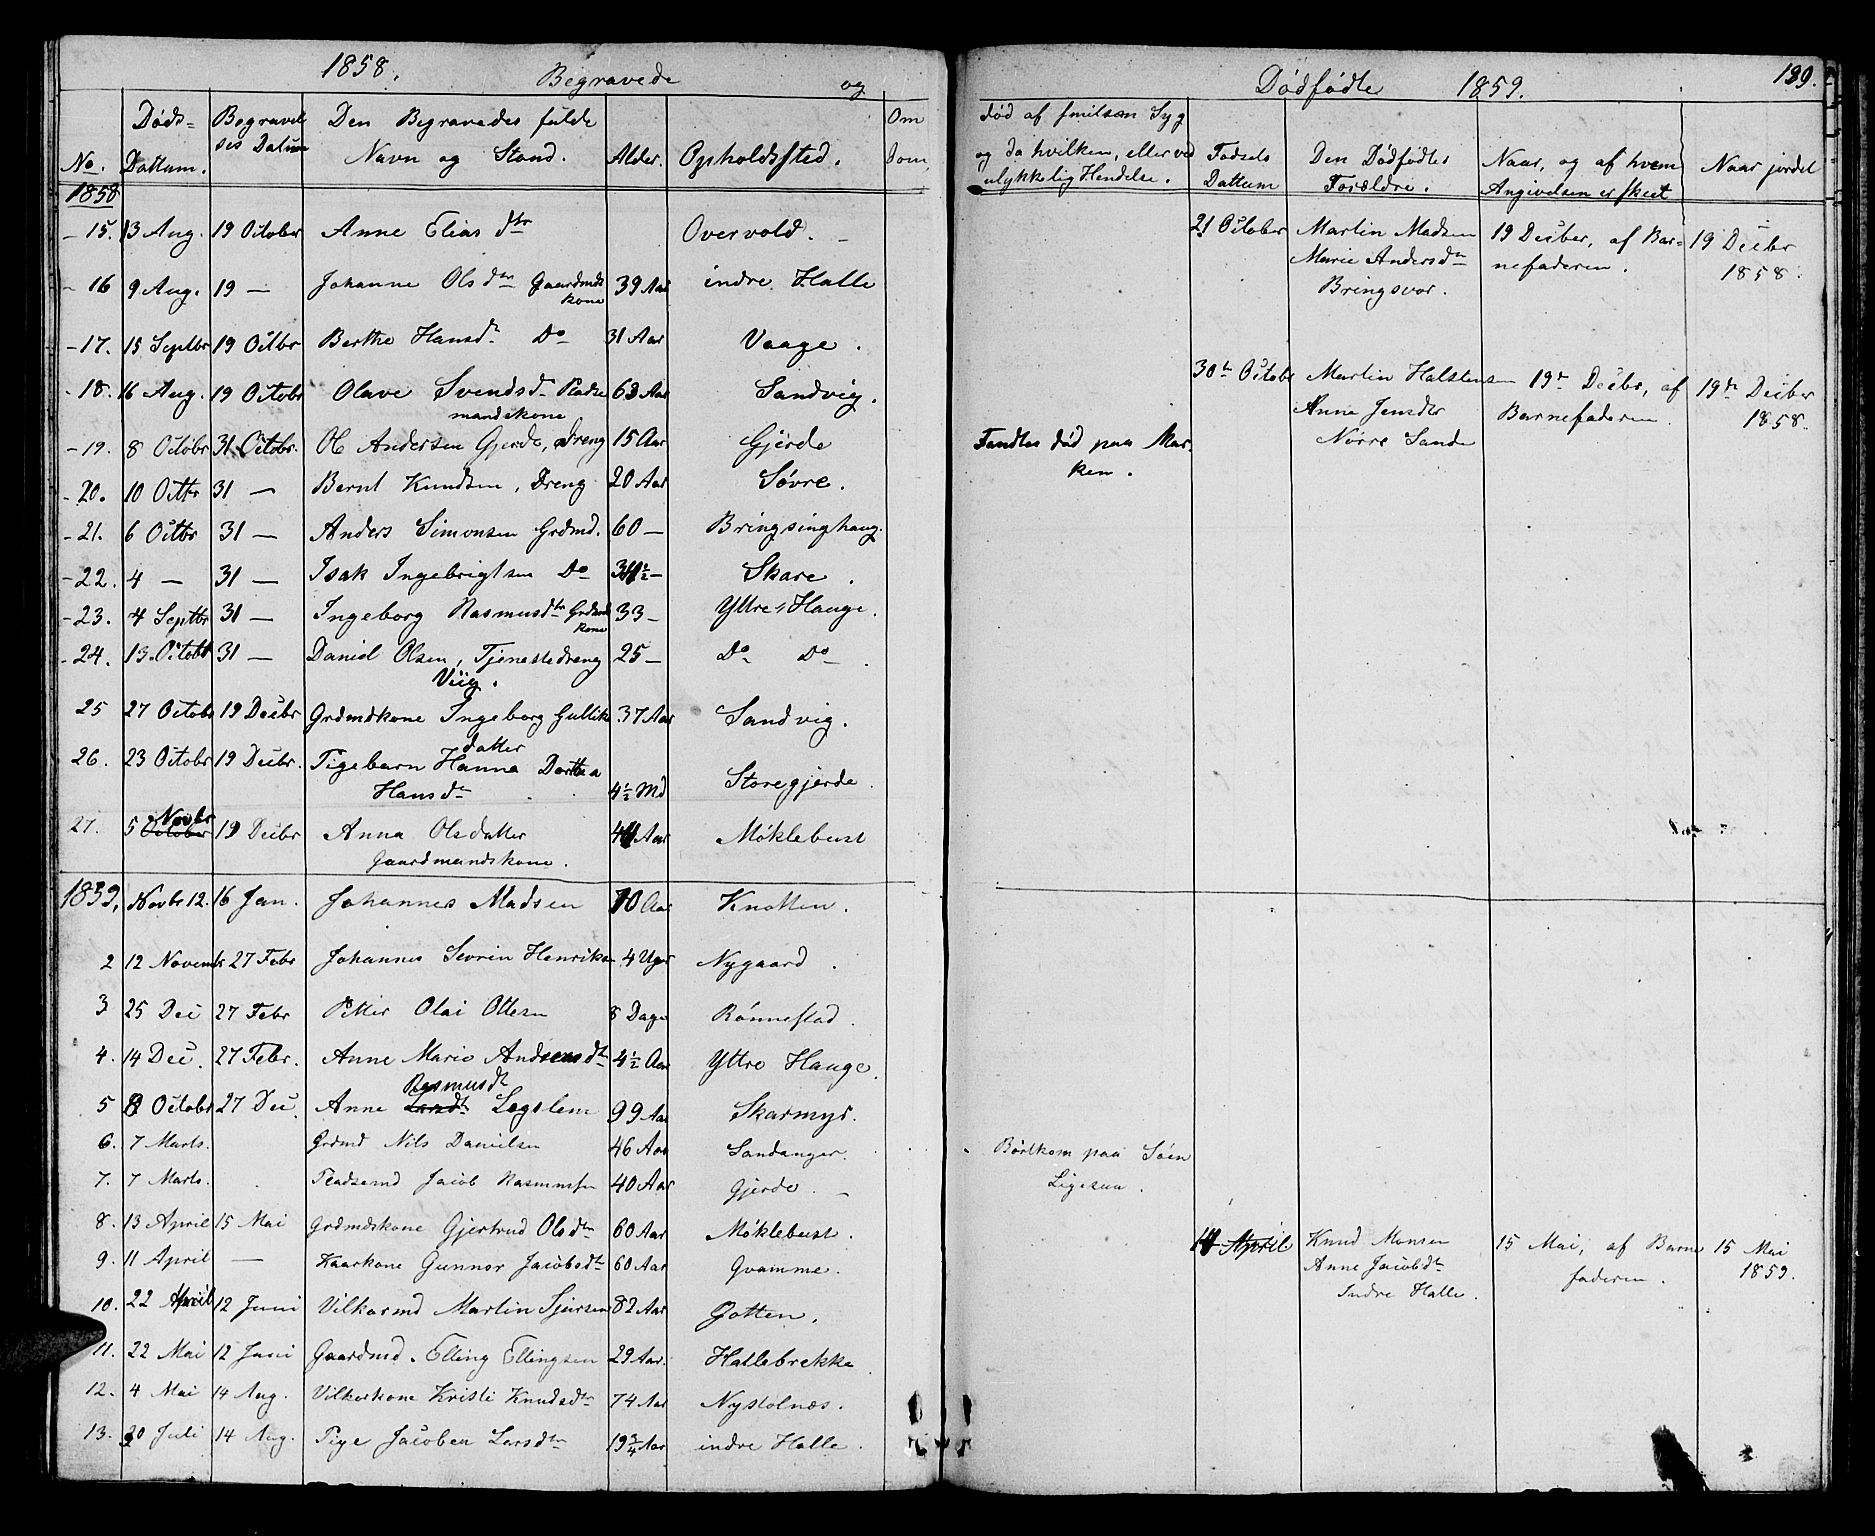 1858. Begravede og
No. Døds- Dattum. Begravel ses Datum Den Begravedes fulde Navn og Stand. Alder. Opholdssted. Om dom
1858
15. 13 Aug. 19 October Anne Elias dtr Overvold.
16 9 Aug. 19 — Johanne Olsdtr Gaardmds kone 39 Aar indre Halle
17. 15 Septbr 19 Octbr Berthe Hansdr Do 31 Aar Vaage.
18. 16 Aug. 19 Octobr Olave Svendsdr Pladse mandskone 63 Aar Sandvig.
19. 8 Octobr 31 Octobr. Ol Andersen Gjerde, dreng 15 Aar Gjerde
20. 10 Octbr 31 — Bernt Knudsen, Dreng 20 Aar Søvre.
21. 6 Octbr 31 — Anders Simonsen Grdmd. 60 — Bringsinghaug.
22. 4 — 31 — Isak Ingebrigtsen Do — Skare.
23. 4 Septbr 31 — Ingeborg Rasmusdtr Grdmds kone 33 — Yttre Hauge.
24. 13 Octobr 31 — Daniel Olsen, Tjenestedreng Viig. 25 — Do Do
25 27 Octobr 19 Decbr Grdmdskone Ingeborg Gulliks datter 37 Aar Sandvig.
26. 23 Octobr 19 Decbr. Pigebarn Hanna Dorthea Hansdtr 4½ Md Storegjerde
27. 5 October Novbr 19 Decbr Anna Olsdatter Gaardmandskone. Aar Møklebust
1859, Novbr 12. 16 Jan. Johannes Madsen 70 Aar Knotten.
2 12 Novembr 27 Febr Johannes Sevrin Henriksen 4 Uger Nygaard.
3 25 Dec 27 Febr Petter Olai Ottesen 8 Dage Rønnestad.
4. 14 Dec. 27 Febr. Anne Marie Andsensdtr 4½ Aar Yttre Hauge.
5 8 Octobr 27 Dec. Anne Larsdt Rasmusdt Legslem 99 Aar Skarmyr.
6. 7 Marts. Grdmd Nils Danielsen 46 Aar Sandanger.
7. 7 Marts. Pladsemd Jacob Rasmussen 40 Aar Gjerde.
8. 13 April 15 Mai Grdmdskone Gjertrud Olsdtr 60 Aar Møklebust.
9. 11 April — Kaarkone Gunnor Jacobsdtr 60 Aar Qvamme.
10. 22 April 12 Juni Vilkarmd Martin Sjursen 82 Aar Gotten.
11. 22 Mai 12 Juni Gaardmd. Elling Ellingsen 29 Aar. Hallebrekke
12. 4 Mai 14 Aug. Vilkarkone Kristi Knudsdtr 74 Aar Nystolnæs.
13. 20 Juli 14 Aug. Pige Jacobea Larsdtr 19¾ Aar indre Halle.
Dødfødte 1859. 139.
død af smitsom Syg
og da hvilken, eller ved ulykkelig Hendelse. Fødsels Dattum Den Dødfødtes Forældre. Naar, og af hvem Angivelsen er skeet Naar jordet
21 October Martin Madsen 19 Decber, af Bar- 19 Decbr
Marie Andersdtr nefaderen. 1858.
Bringsvor.
30te Octobr Martin Halstensen 19de Decbr, af 19de Decber
Anne Jensdtr Barnefaderen. 1858.
Nørre Sande
Fandtes død paa Mar-
ken.
Bortkom paa Søen
Ligesaa.
14 April Knud Monsen 15 Mai, af Barne 15 Mai
Anne Jacobsdtr faderen. 1859.
Indre Halle.